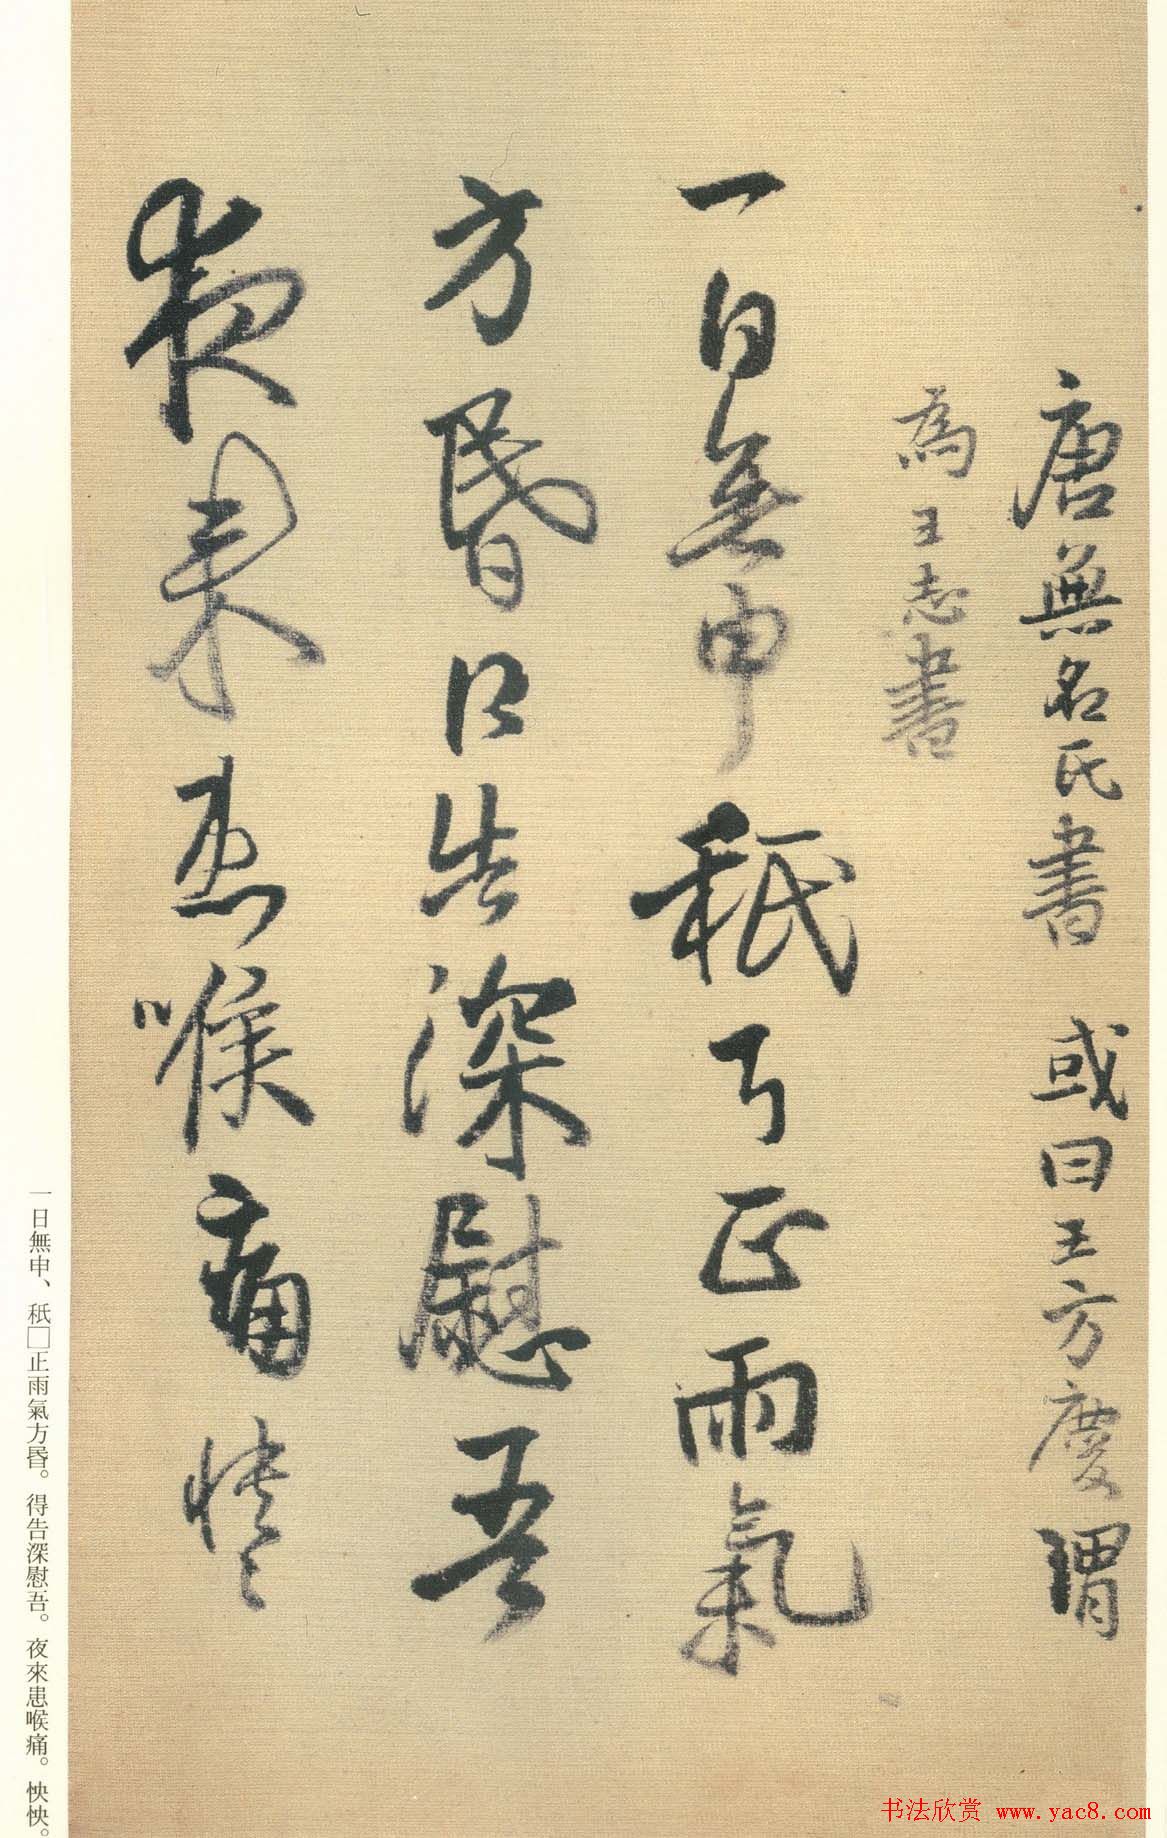 唐無名氏書 或曰王方慶 謂
為王志書
一日無申秖正雨氣
方昏得告深慰吾
夜来患喉痛怏〻
一日無申、秖□正雨氣方昏。得告深慰吾。夜來患喉痛。怏怏。
书法欣赏 www.yac8.com